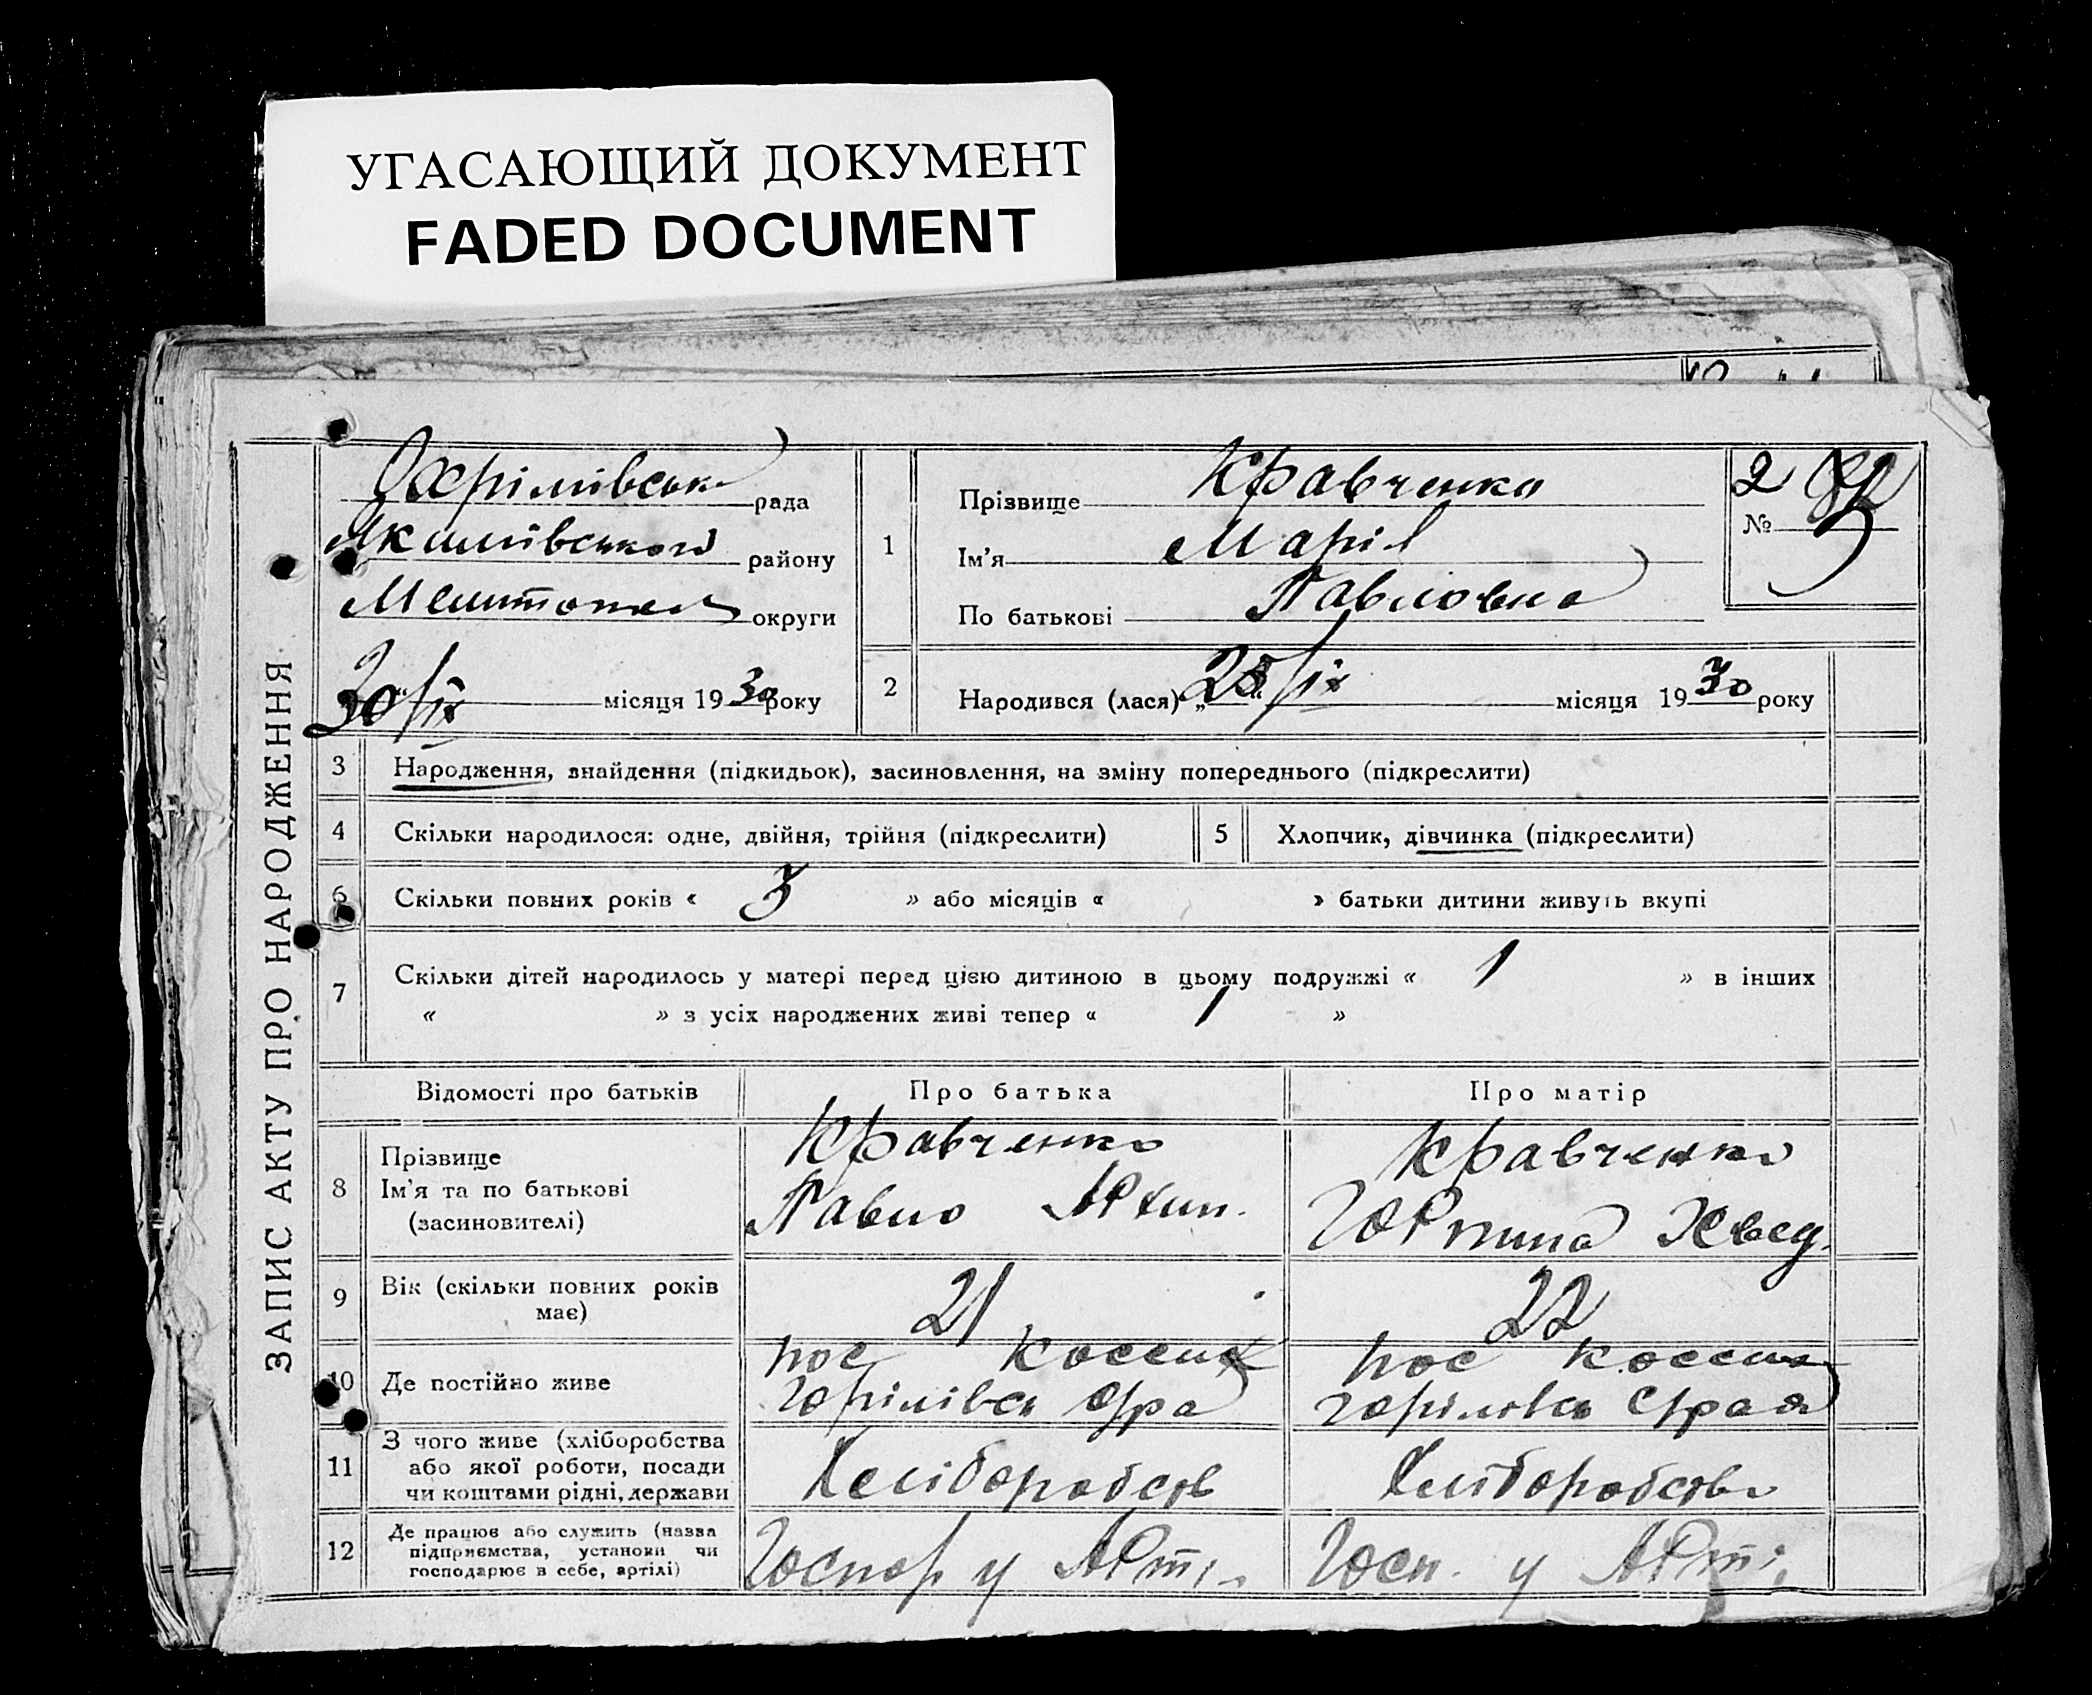 УГАСАЮЩИЙ ДОКУМЕНТ
FADED DOCUMENT
ЗАПИС АКТУ ПРО НАРОДЖЕННЯ
Охрімівськ рада
Якимівської району
Мелітопол округи
30/ІХ місяця 1930 року
1
Прізвище Кравченко
Ім'я Марія
По батькові Павловна
2
№
2
Народився (лася) „28“/ іх місяця 1930 року
3 Народження, знайдення (підкидьок), засиновлення, на зміну попереднього (підкреслити)
4 Скільки народилося: одне, двійня, трійня (підкреслити)
5 Хлопчик, дівчинка (підкреслити)
6 Скільки повних років « 3 » або місяців « » батьки дитини живуть вкупі
7 Скільки дітей народилось у матері перед цією дитиною в цьому подружжі « 1 » в інших
« » з усіх народжених живі тепер « 1 »
Відомості про батьків Про батька Про матір
8 Прізвище
Ім'я та по батькові
(засиновителі)
Кравченко
Павло
Кравченко
Хвед.
9 Вік (скільки повних років
має)
21
22
10 Де постійно живе
пос
пос
11 З чого живе (хліборобства
або якої роботи, посади
чи коштами рідні, держави
Хліборобств
Хліборобство
12 Де працює або служить (назва
підприємства, установи чи
господарює в себе, артілі)
Господ у Арті.
Госп. у Арті.